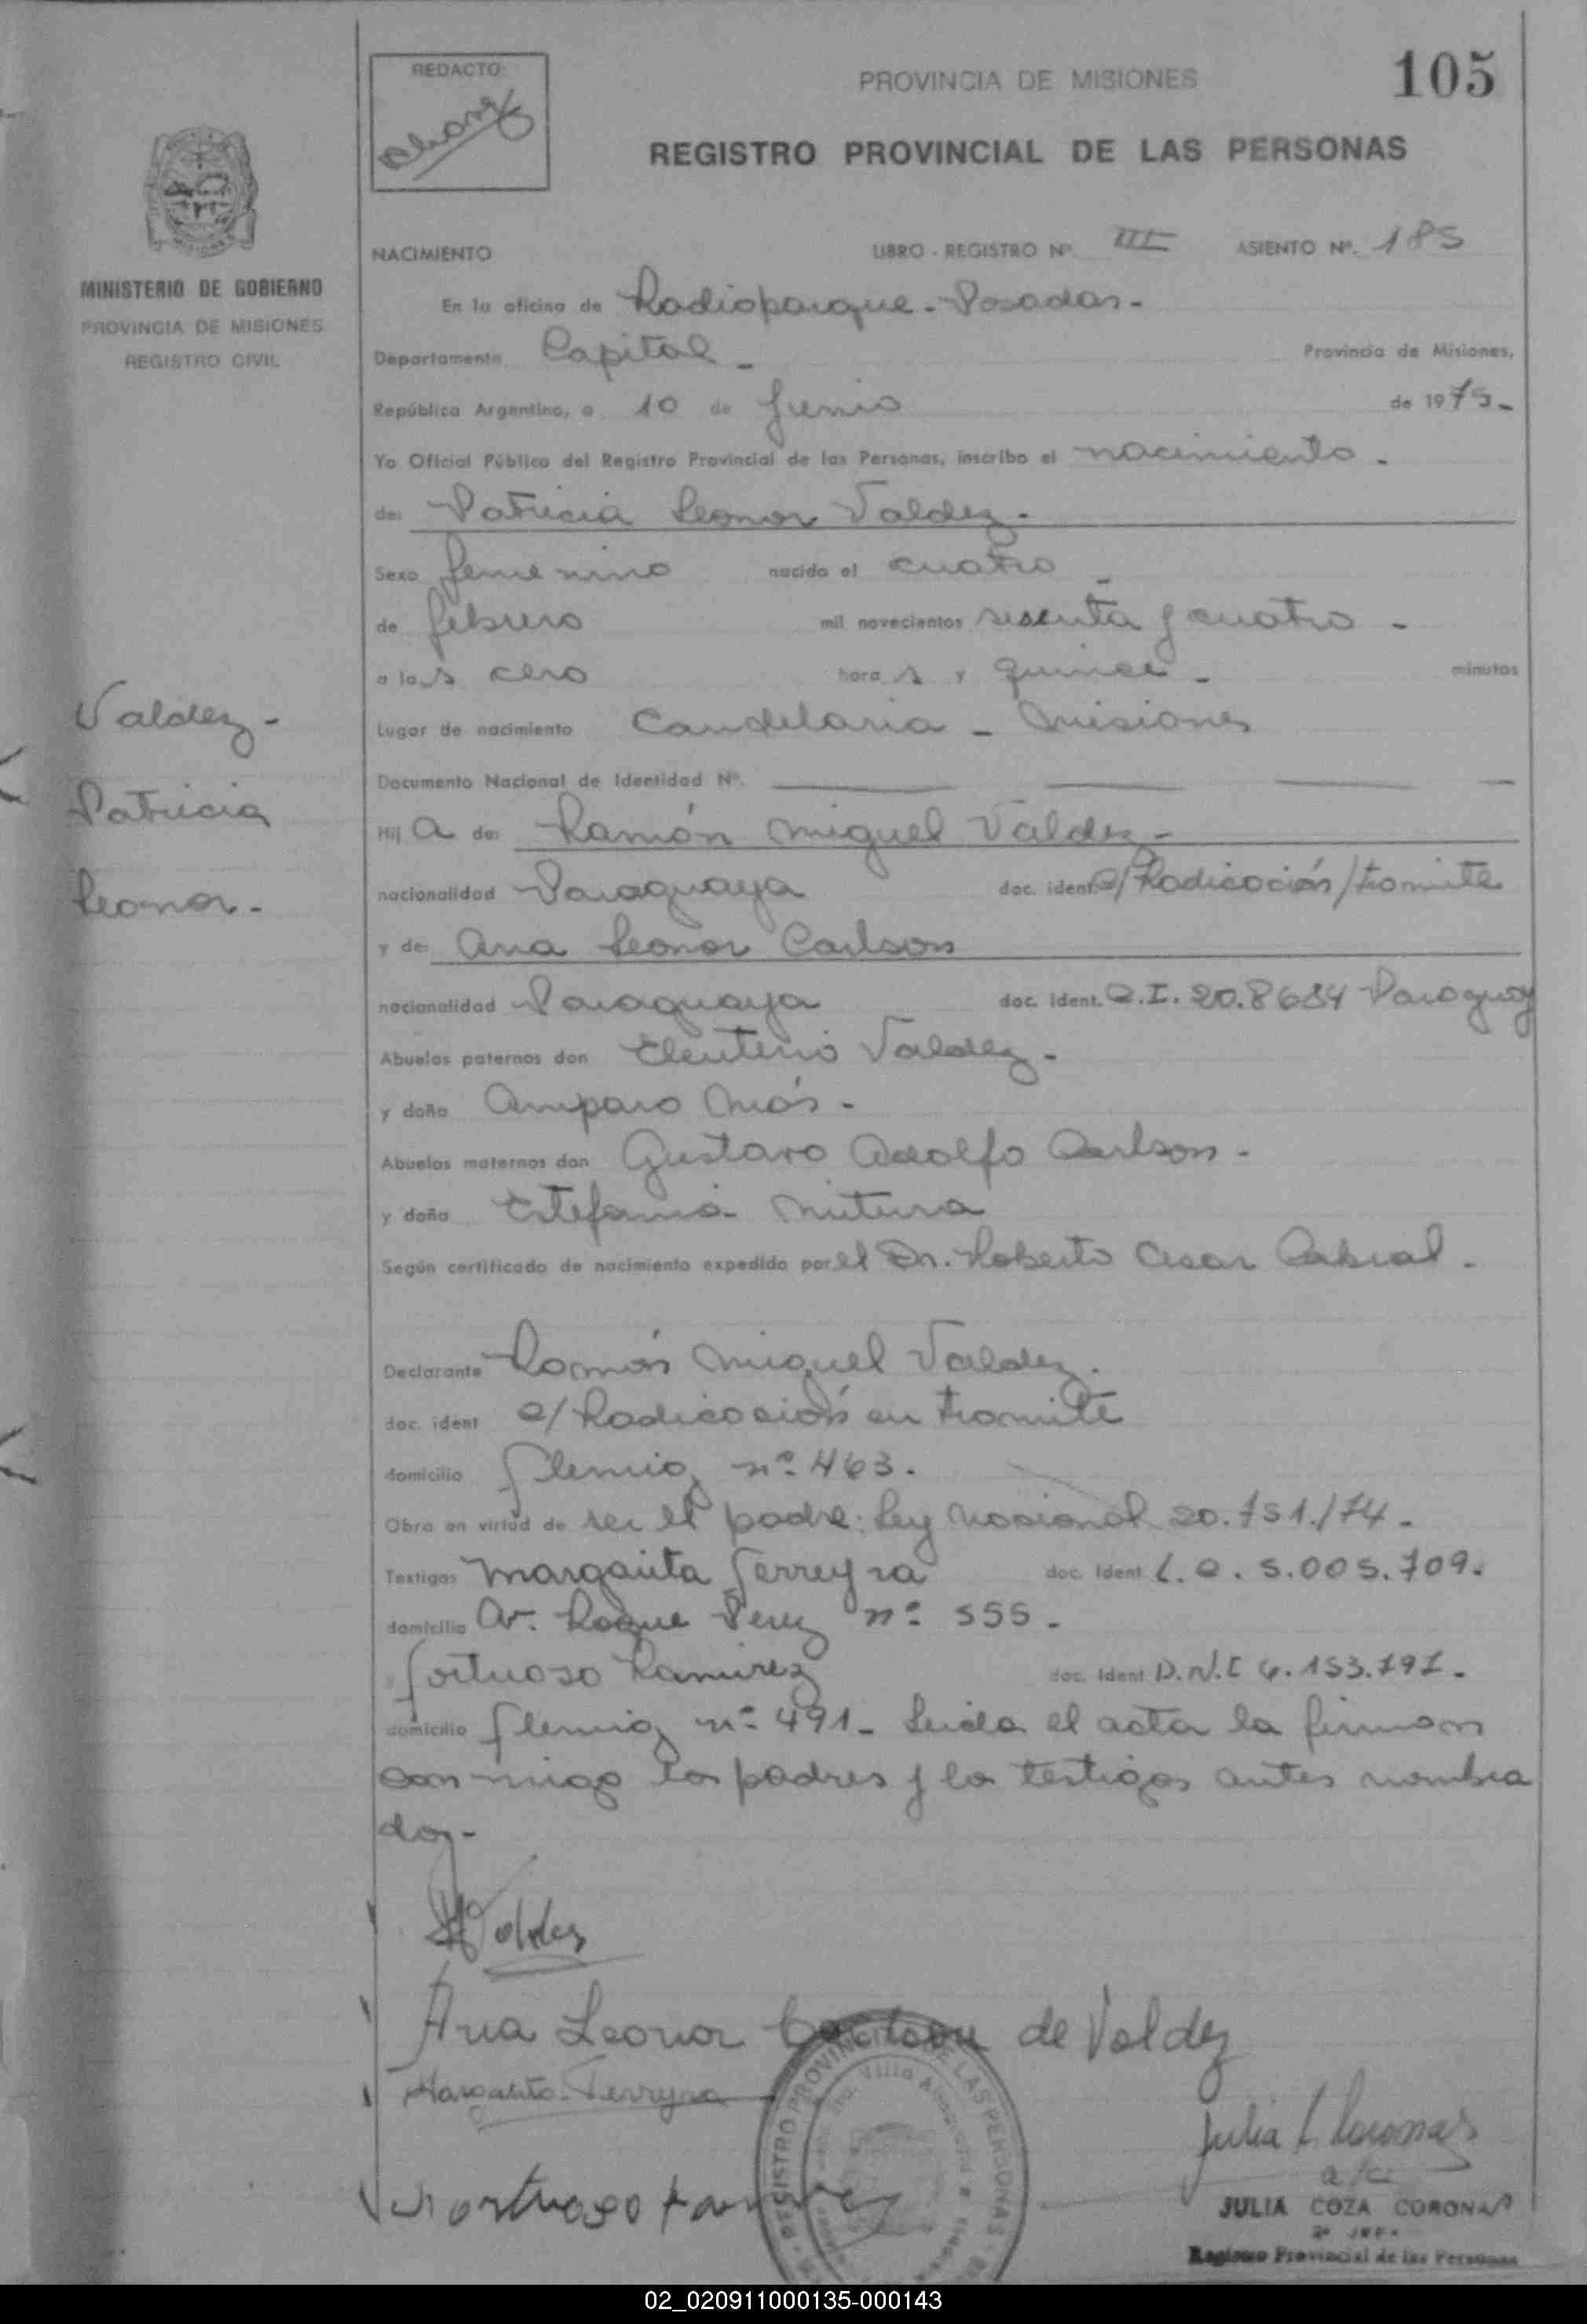 REDACTO:
PROVINCIA DE MISIONES
105
REGISTRO PROVINCIAL DE LAS PERSONAS
MINISTERIO DE GOBIERNO
PROVINCIA DE MISIONES
REGISTRO CIVIL
NACIMIENTO LIBRO - REGISTRO Nº III ASIENTO Nº. 185
En la oficina de Radioparque - Posadas -
Departamento Capital - Provincia de Misiones,
República Argentina, a 10 de Junio de 1975-
Yo Oficial Público del Registro Provincial de las Personas, inscribo el nacimiento -
de: Patricia Leonor Valdez -
Sexo femenino nacido el cuatro -
de febrero mil novecientos sesenta y cuatro -
a las cero horas y quince - minutos
Lugar de nacimiento Candelaria - Misiones
Valdez -
Patricia
Leonor -
Documento Nacional de Identidad Nº.
Hija de: Ramón Miguel Valdez -
nacionalidad Paraguaya doc. ident. c/ Radicación/tramite
y de: Ana Leonor Carlson
nacionalidad Paraguaya doc. ident. C.I. 20.8684 Paraguay
Abuelos paternos don Eleuterio Valdez -
y doña Amparo Mós -
Abuelos maternos don Gustavo Adolfo Carlson -
y doña Estefania Mitura
Según certificado de nacimiento expedido por el Dr. Roberto Cesar Cabral -
Declarante Ramón Miguel Valdez.
doc. ident c/ Radicación en tramite
domicilio Fleming nº 463.
Obra en virtud de ser el padre: Ley Nacional 20.751./74 -
Testigos Margarita Ferreyra doc. ident L.C. 5.005.709.
domicilio Av. Roque Perez nº 555 -
y Fortuoso Ramirez doc. ident D.N.I 6.153.797 -
domicilio Fleming nº 491 - Leida el acta la firman
con migo los padres y los testigos antes nombra
dos -
Valdez
Ana Leonor Carlson de Valdez
Margarita Ferreyra
Fortuoso Ramirez
REGISTRO PROVINCIAL DE LAS PERSONAS
Villa
Julia C Coronas
a/c
JULIA COZA CORONAS
Registro Provincial de las Personas
02_020911000135-000143